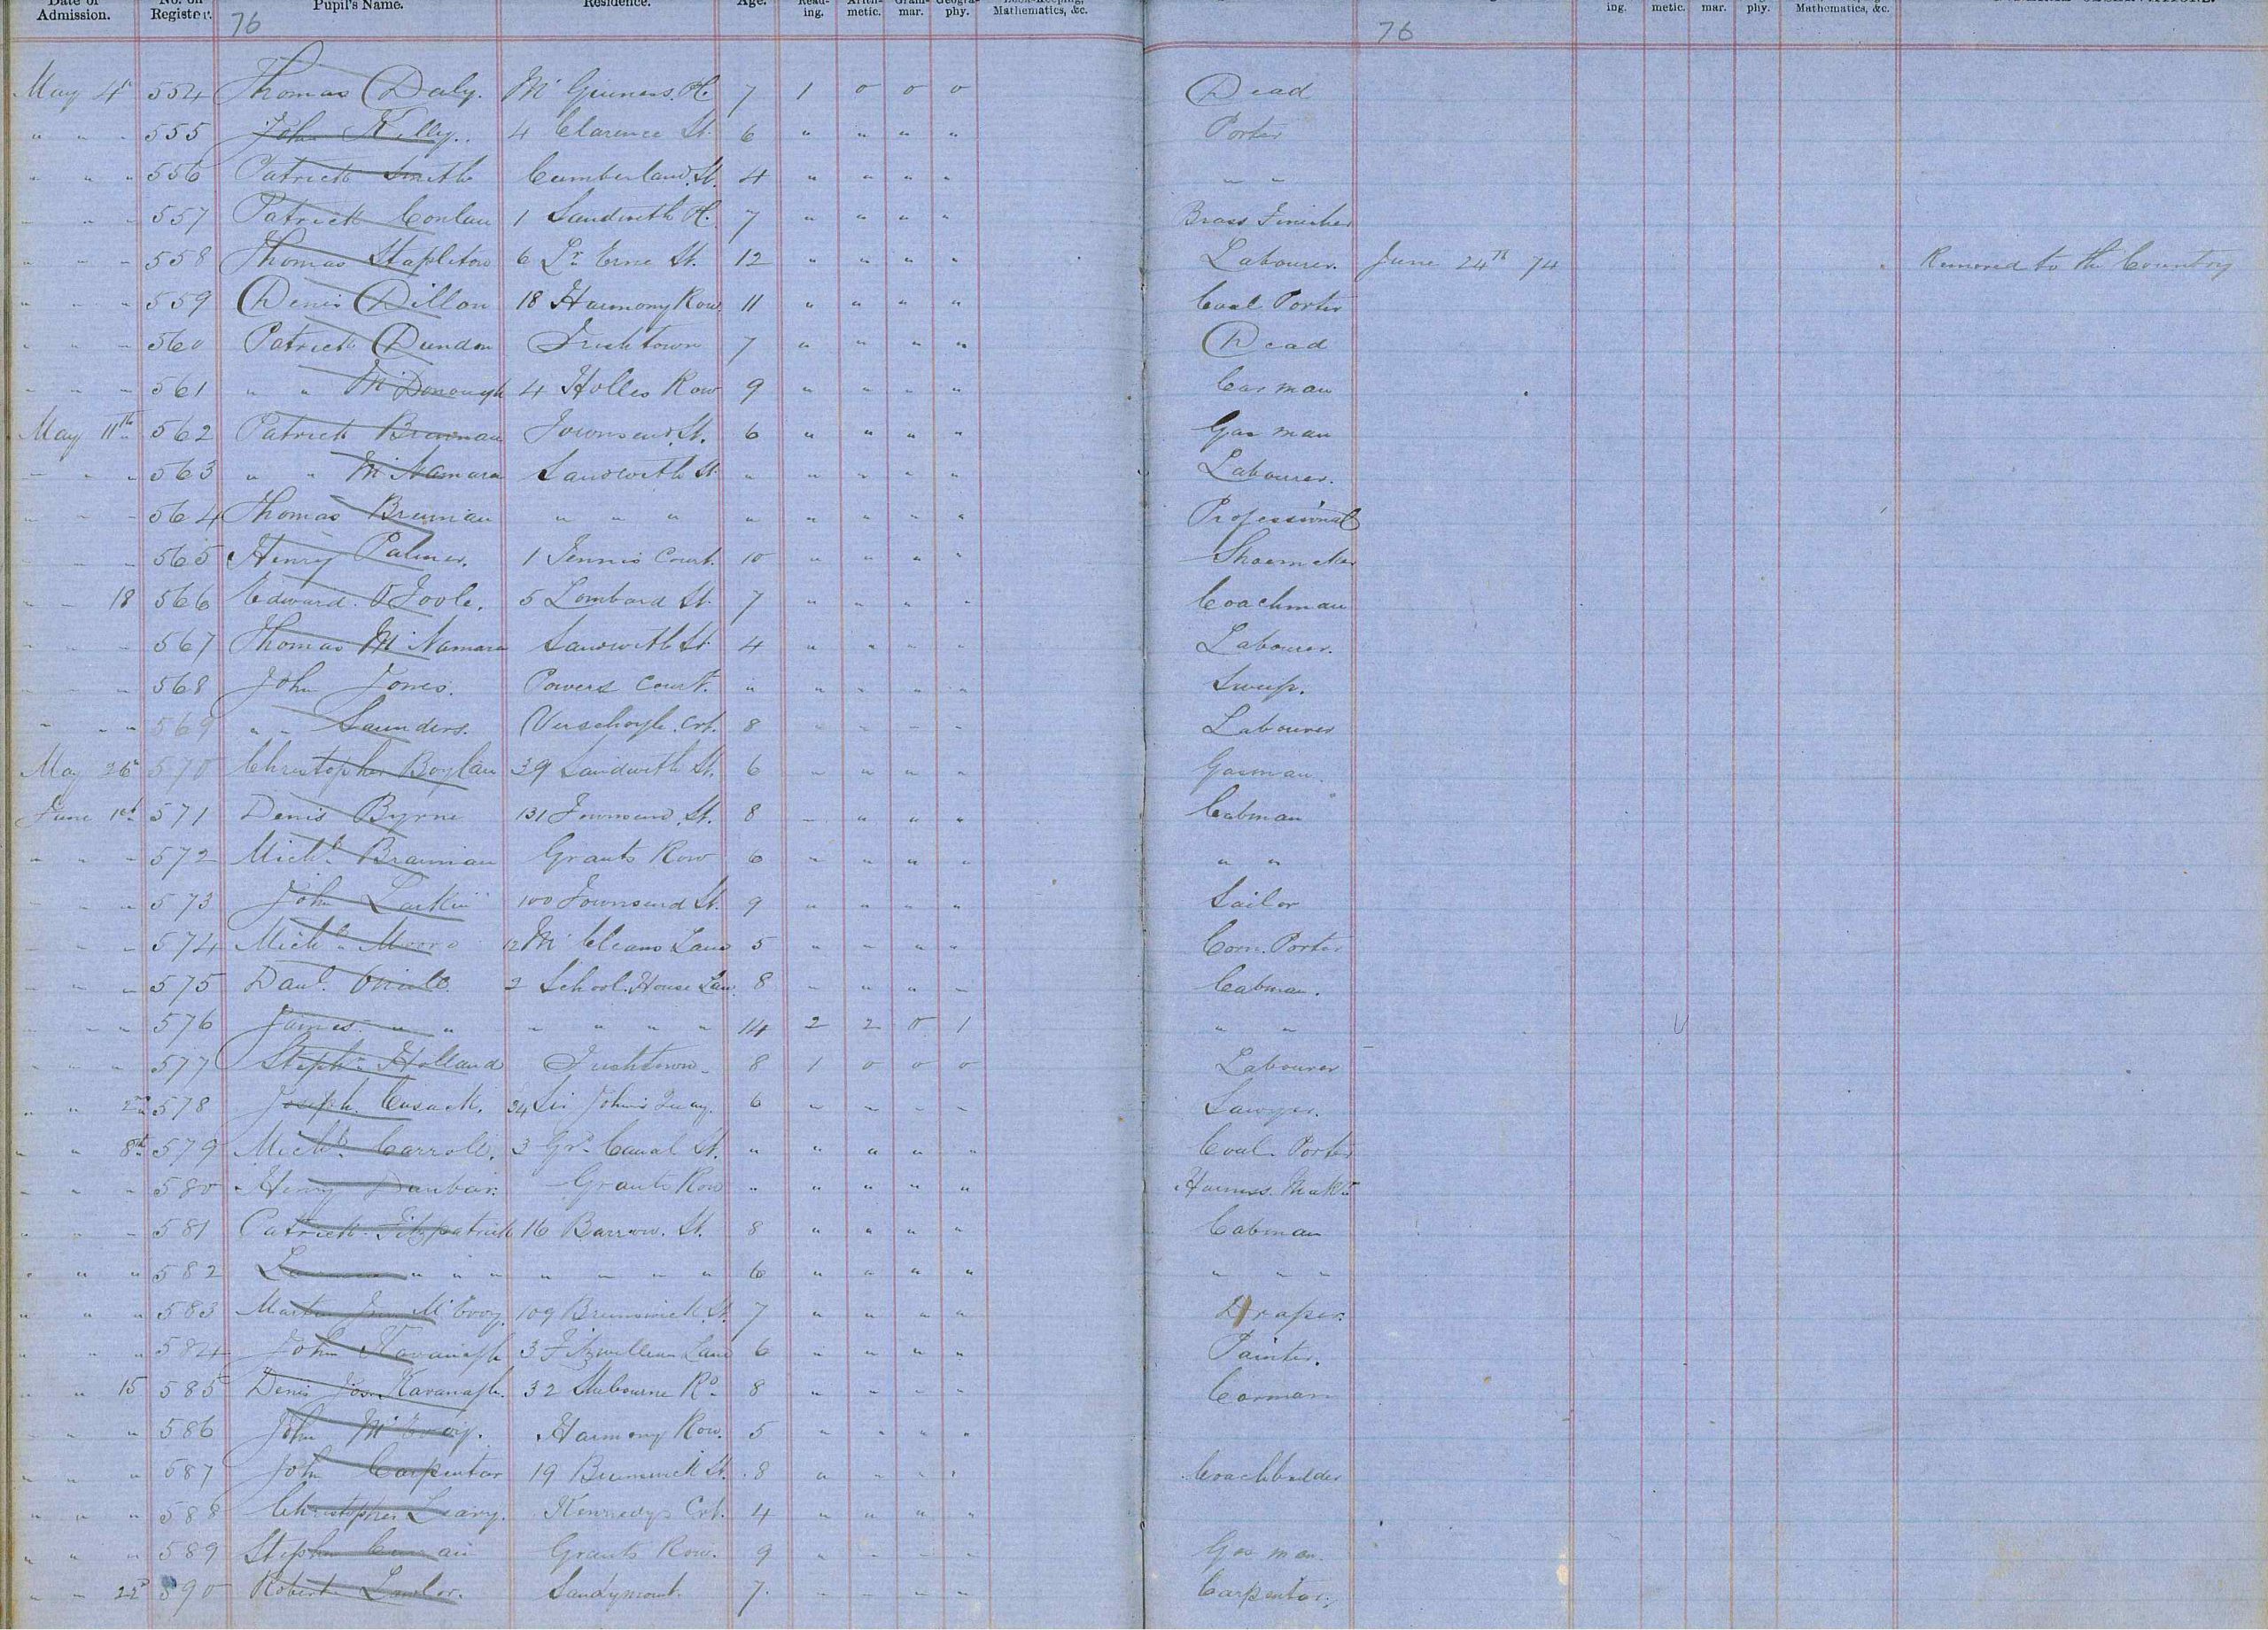 Date of Admission. No. on Register. Pupil's Name. Residence. Age. Read-ing. Arith-metic. Gram-mar. Geogra-phy. Book-keeping, Mathematics, &c. ing. metic. mar. phy. Mathematics, &c.
76 76
May 4th 554 Thomas Daly. Mc Guiness. Pl. 7 1 0 0 0 Dead
" " " 555 John Kelly. 4 Clarence St. 6 " " " " Porter
" " " 556 Patrick Smith Cumberland. St. 4 " " " " " "
" " " 557 Patrick Conlan 1 Sandwith Pl. 7 " " " " Brass Finisher
" " " 558 Thomas Stapleton 6 Lr Erne St. 12 " " " " Labourer. June 24th 74 Removed to the Country
" " " 559 Denis Dillon 18 Harmony Row 11 " " " " Coal Porter
" " " 560 Patrick Dundon Irishtown 7 " " " " Dead
" " " 561 " " Mc Donough 4 Holles Row 9 " " " " Car man
May 11th 562 Patrick Brennan Townsend. St. 6 " " " " Gas man
" " " 563 " " Mc Namara Sandwith St. " " " " " Labourer.
" " " 564 Thomas Brennan " " " " " " " " Professional
" " " 565 Henry Palmer. 1 Tennis Court. 10 " " " " Shoemaker
" " 18 566 Edward. O Toole. 5 Lombard St. 7 " " " " Coachman
" " " 567 Thomas Mc Namara Sandwith St 4 " " " " Labourer.
" " " 568 John Jones. Powers Court. " " " " " Sweep.
" " " 569 " " Saunders. Verschoyle. Crt. 8 " " " " Labourer
May 26th 570 Christopher Boylan 39 Sandwith St. 6 " " " " Gasman.
June 1st 571 Denis Byrne 131 Townsend. St. 8 " " " " Cabman
" " " 572 Michl. Brannian Grants Row 6 " " " " " "
" " " 573 John Larkin 100 Townsend St. 9 " " " " Sailor
" " " 574 Michl. Moore 12 Mc Cleans Lane 5 " " " " Corn. Porter
" " " 575 Danl. Oneill 2 School. House Lan. 8 " " " " Cabman.
" " " 576 James. " " " " " " 14 2 2 0 1 " "
" " " 577 Stephn Holland Irishtown 8 1 0 0 0 Labourer
" " 2nd 578 Joseph. Cusack. 34 Sir John's Quay. 6 " " " " Sawyer.
" " 8th 579 Michl. Carroll. 3 Grd Canal St. " " " " " Coal. Porter
" " " 580 Henry Dunbar. Grants Row " " " " " Harness. Makr
" " " 581 Patrick. Fitzpatrick 16 Barrow. St. 8 " " " " Cabman
" " " 582 " " " " " " " 6 " " " " " " "
" " " 583 Martin Jas Mc Evoy. 109 Brunswick. St. 7 " " " " Draper.
" " " 584 John Kavanagh 3 Fitzwilliam Lane 6 " " " " Painter.
" " 15 585 Denis Jos. Kavanagh. 32 Shelbourne Rd. 8 " " " " Carman
" " " 586 John Mc Evoy. Harmony Row. 5 " " " "
" " " 587 John Carpenter 19 Brunswick St. 8 " " " " Coachbuilder
" " " 588 Christopher Leary. Kennedys Crt. 4 " " " "
" " " 589 Stephen Grants Row. 9 " " " " Gas man.
" " 22d 590 Robert Lawlor. Sandymount. 7. " " " " Carpenter.